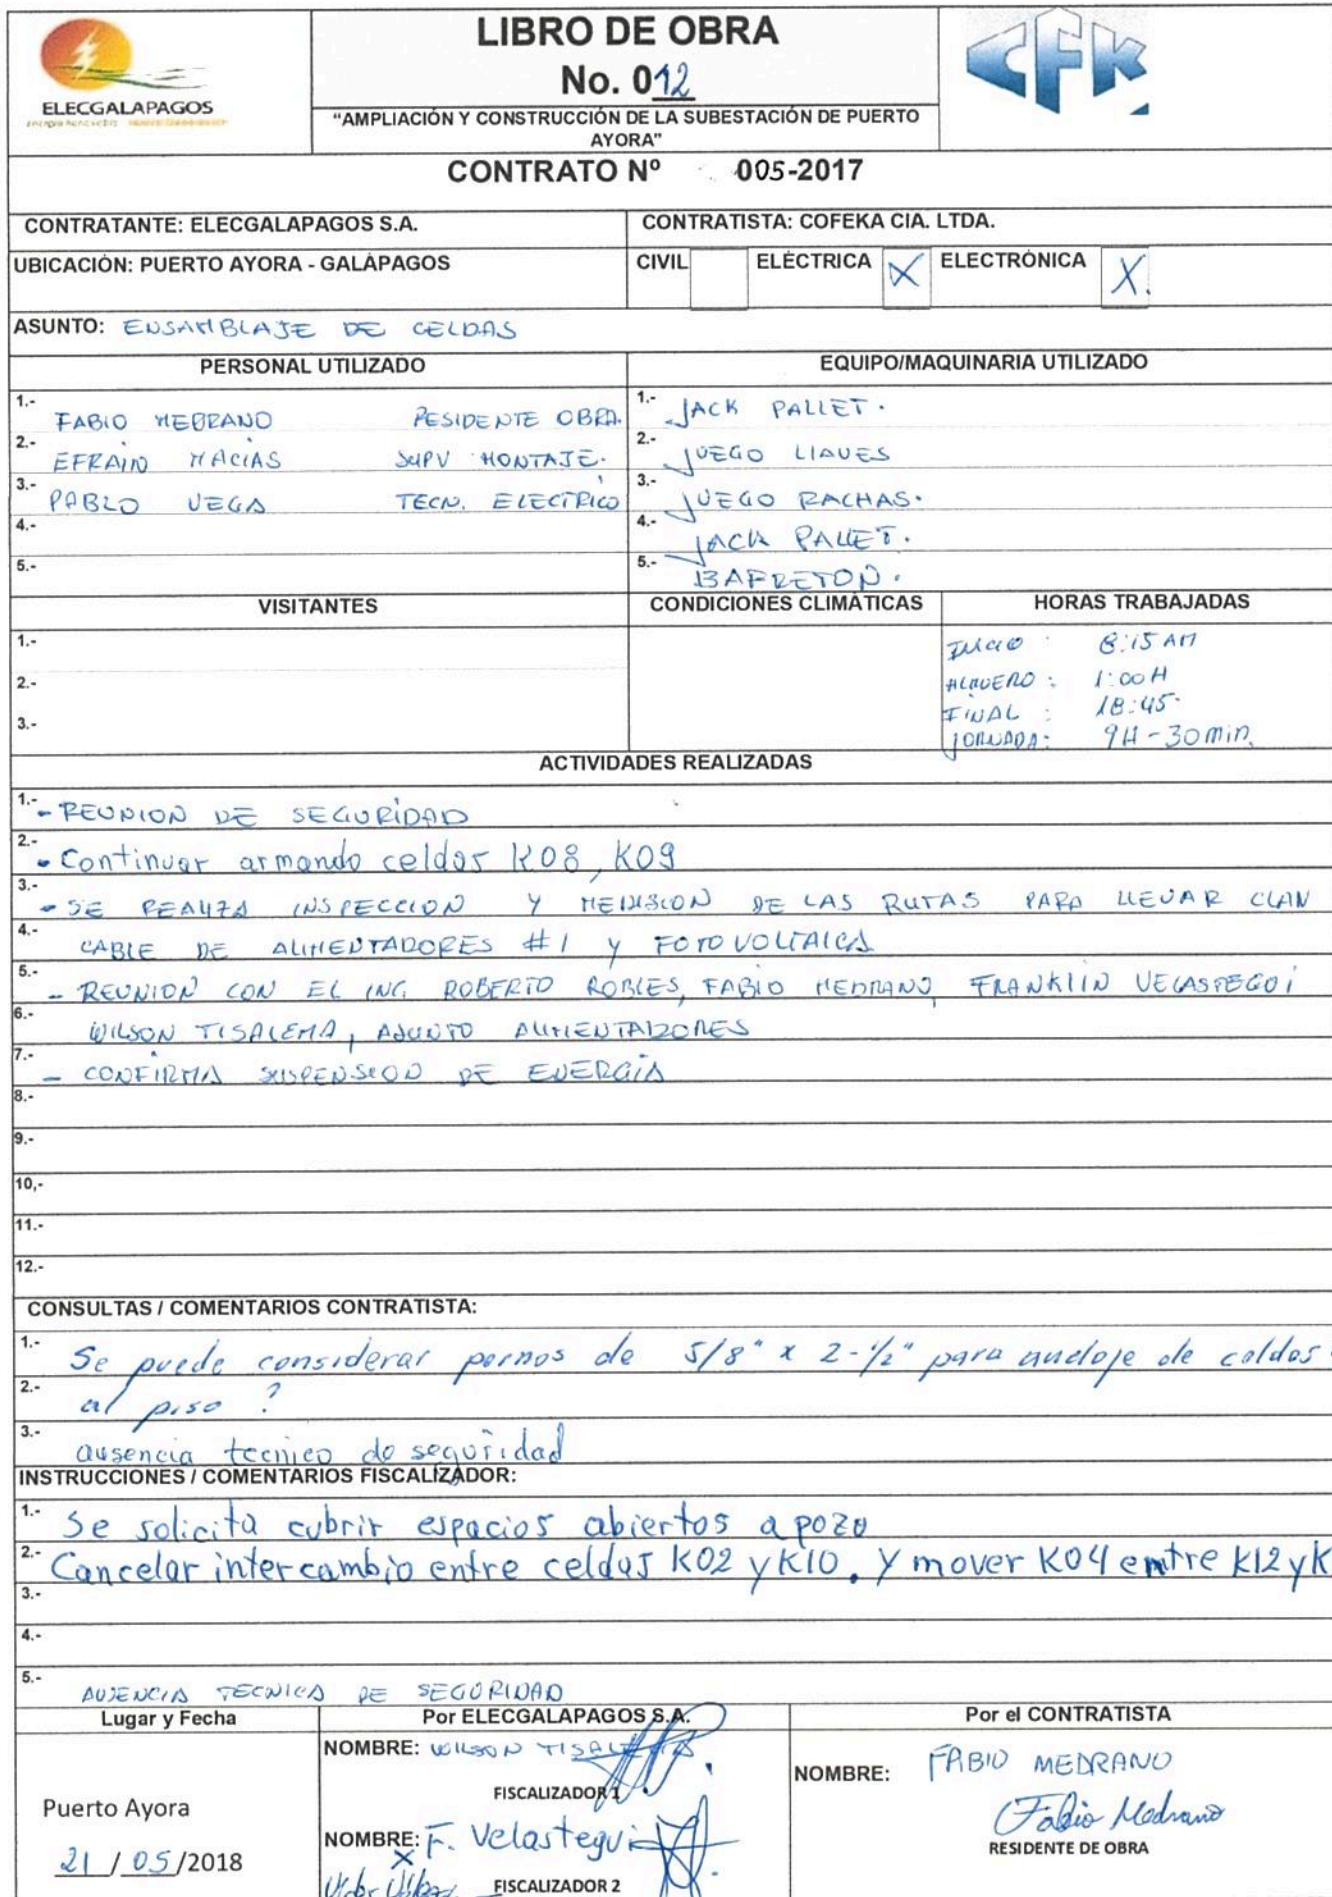 ELECGALAPAGOS
LIBRO DE OBRA
No. 012
"AMPLIACIÓN Y CONSTRUCCIÓN DE LA SUBESTACIÓN DE PUERTO
AYORA"
CFK
CONTRATO Nº 005-2017
CONTRATANTE: ELECGALAPAGOS S.A. CONTRATISTA: COFEKA CIA. LTDA.
UBICACIÓN: PUERTO AYORA - GALÁPAGOS CIVIL ELÉCTRICA X ELECTRÓNICA X.
ASUNTO: ENSAMBLAJE DE CELDAS
PERSONAL UTILIZADO EQUIPO/MAQUINARIA UTILIZADO
1.- FABIO MEDRANO RESIDENTE OBRA. 1.- JACK PALLET.
2.- EFRAIN MACIAS SUPV MONTAJE. 2.- JUEGO LLAVES
3.- PABLO VEGA TECN. ELECTRICO 3.- JUEGO RACHAS.
4.- 4.- JACK PALLET.
5.- 5.- BARRETON.
VISITANTES CONDICIONES CLIMÁTICAS HORAS TRABAJADAS
1.- INICIO : 8:15 AM
2.- : 1:00 H
3.- FINAL : 18:45.
JORNADA: 9H-30min.
ACTIVIDADES REALIZADAS
1.- - REUNION DE SEGURIDAD
2.- - Continuar armando celdas K08, K09
3.- - SE REALIZA INSPECCION Y MEDISION DE LAS RUTAS PARA LLEVAR
4.- CABLE DE ALIMENTADORES #1 Y FOTOVOLTAICA
5.- - REUNION CON EL ING. ROBERTO ROBLES, FABIO MEDRANO, FRANKLIN VELASTEGUI
6.- WILSON TISALEMA, ASUNTO ALIMENTADORES
7.- - CONFIRMA SUSPENSION DE ENERGIA
8.-
9.-
10,-
11.-
12.-
CONSULTAS / COMENTARIOS CONTRATISTA:
1.- Se puede considerar pernos de 5/8" x 2-1/2" para anclaje de celdas
2.- al piso ?
3.- ausencia tecnico de seguridad
INSTRUCCIONES / COMENTARIOS FISCALIZADOR:
1.- Se solicita cubrir espacios abiertos a pozo
2.- Cancelar intercambio entre celdas K02 y K10. Y mover K04 entre K12 y K
3.-
4.-
5.- AUSENCIA TECNICA DE SEGURIDAD
Lugar y Fecha Por ELECGALAPAGOS S.A. Por el CONTRATISTA
NOMBRE: WILSON TISALEMA
NOMBRE: FABIO MEDRANO
FISCALIZADOR 1
Puerto Ayora
Fabio Medrano
NOMBRE: F. Velastegui
RESIDENTE DE OBRA
21 / 05 /2018
FISCALIZADOR 2